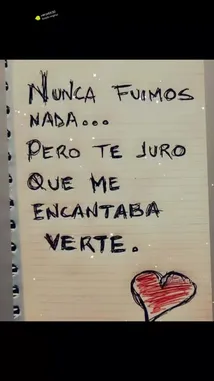 NUNCA FUIMOS
NADA...
PERO TE JURO
QUE ME
ENCANTABA
VERTE.